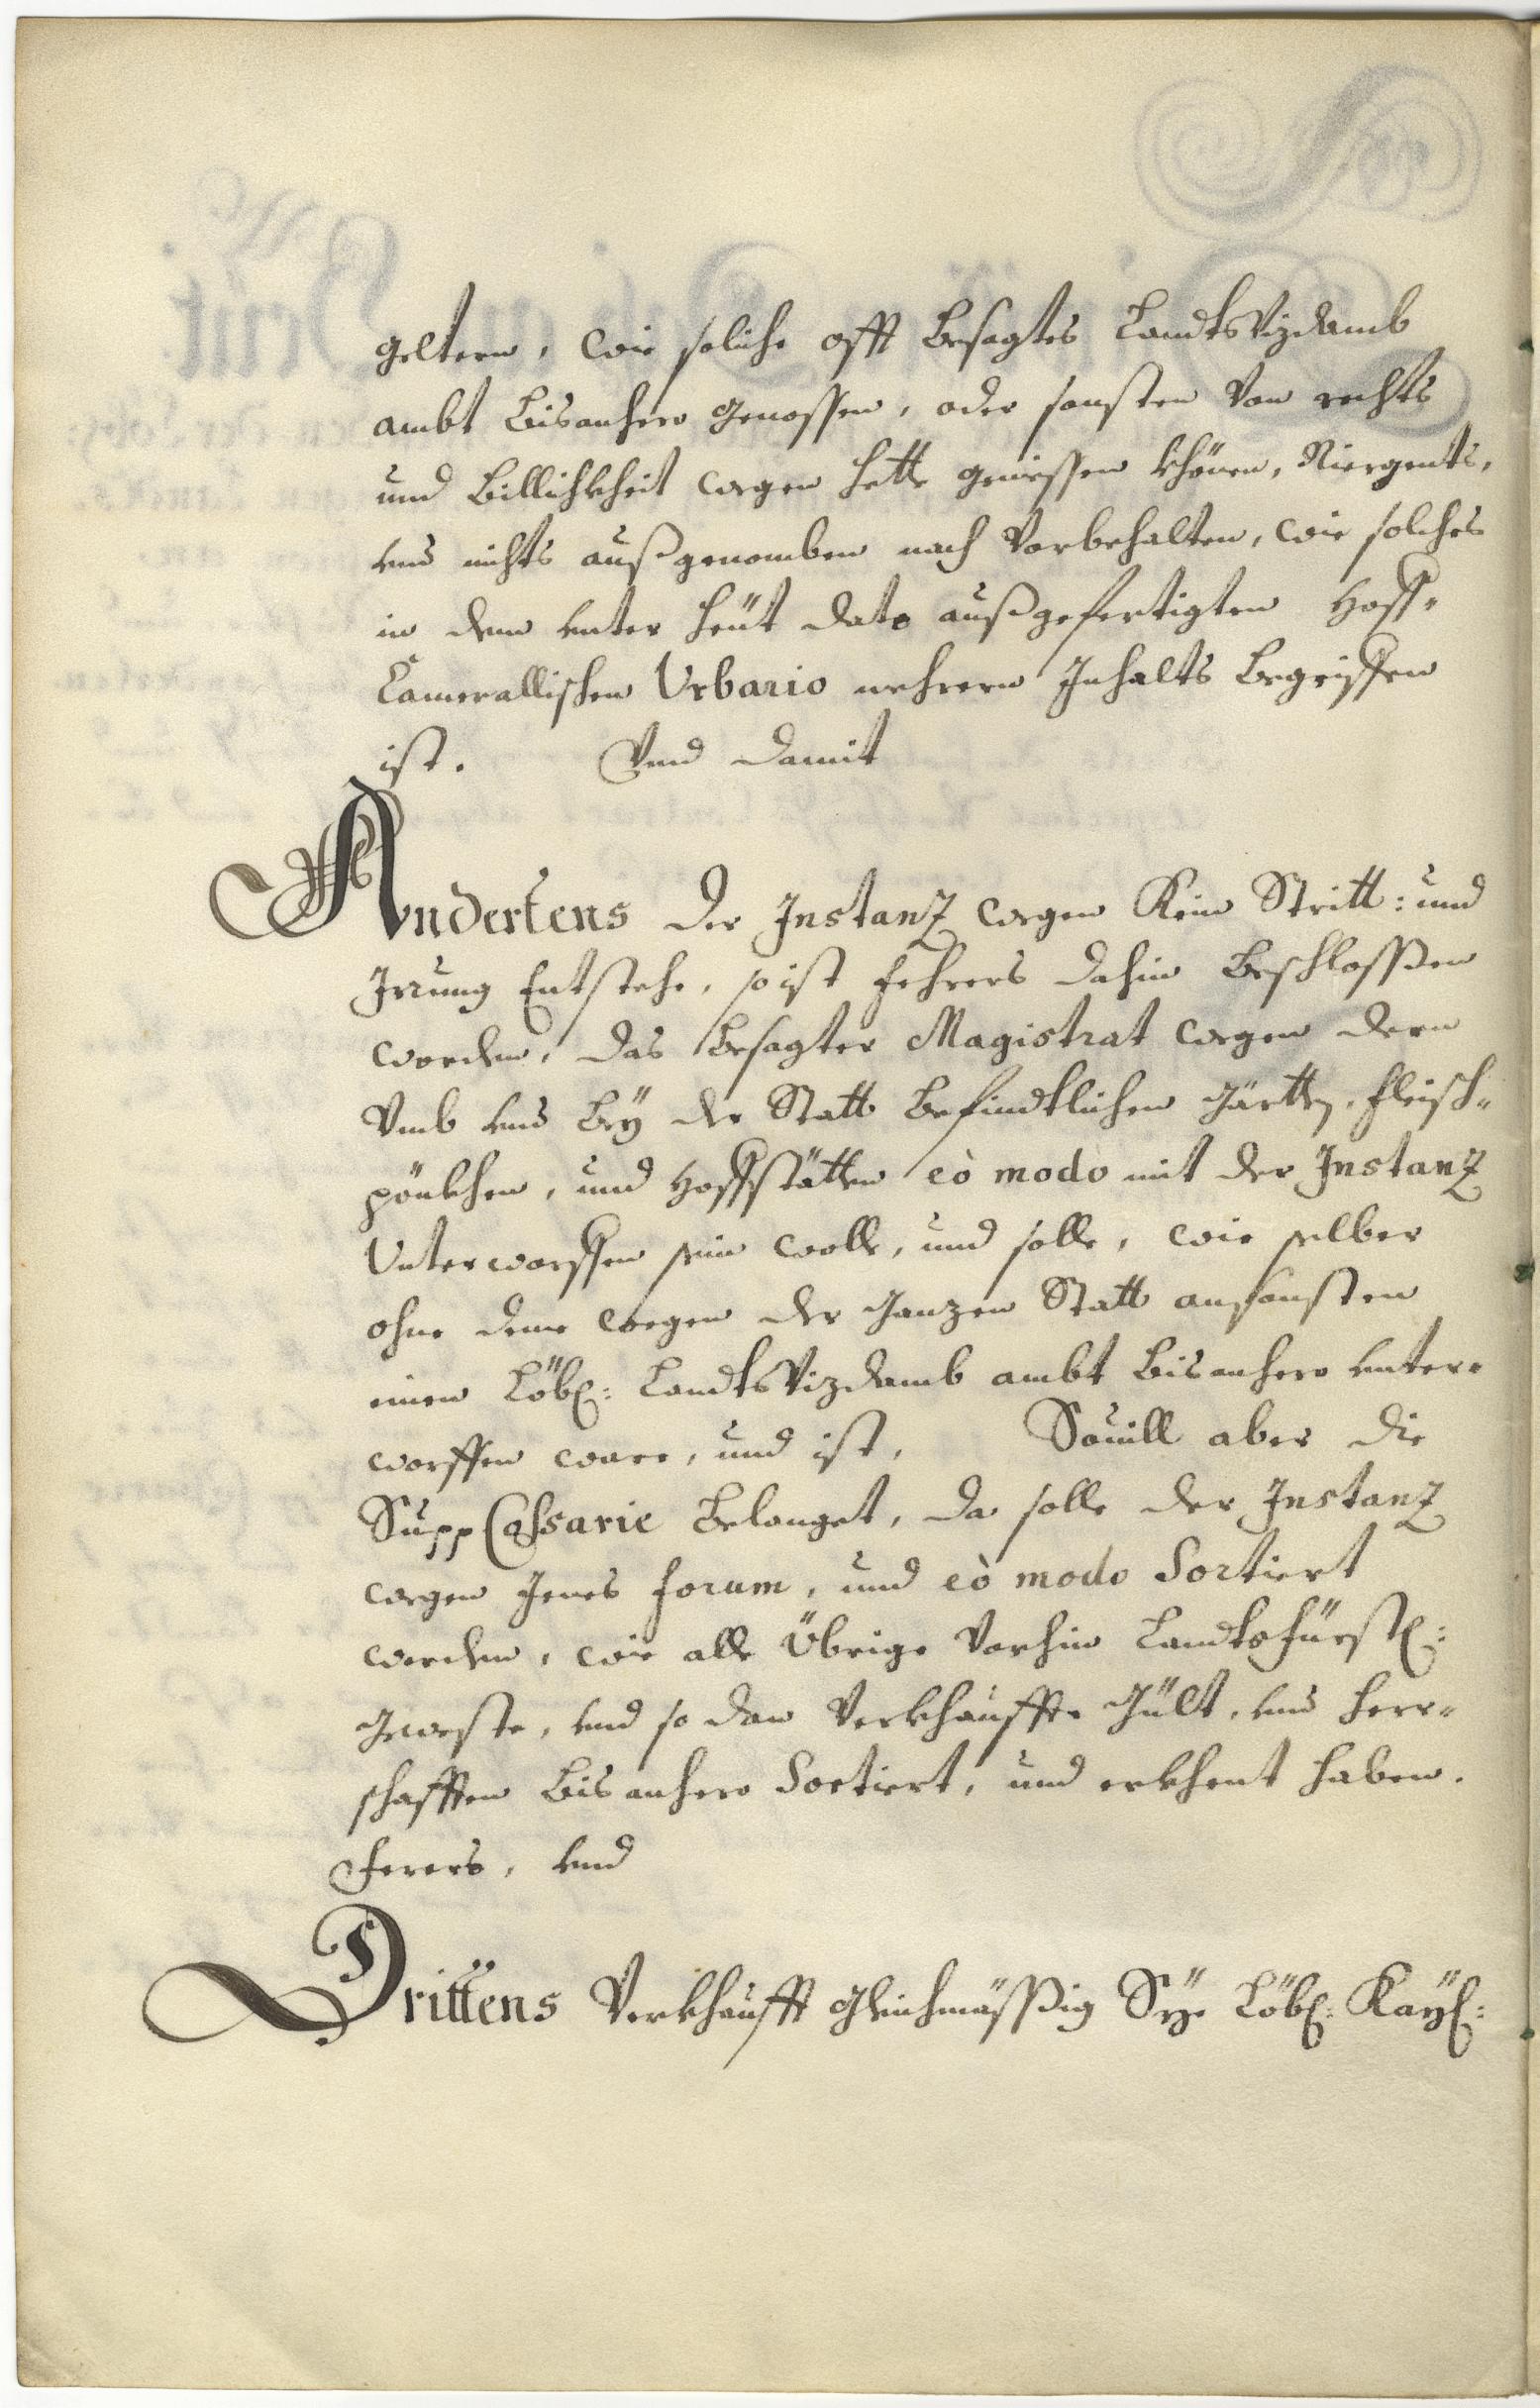 geltern, wie soliche offt besagtes LandtsVizdamb
ambt bisanhero genossen, oder sonsten von rechts
und billichkheit wegen hette geniessen khönen, Niergents,
vnd nichts außgenomben noch vorbehalten, wie solches
in dem vnter heüt dato außgefertigten Hoff-
Camerallischen Urbario mehrern Inhalts begriffen
ist. Vnd damit
Andertens der Instanz wegen Kein Stritt: und
Irrung Entstehe, so ist fehrers dahin beschlossen
worden, das besagter Magistrat wegen dern
Vmb vnd bey der Statt befindtlichen Gärtten, fleisch-
pönkhen, und Hoffstätten eò modo mit der Instanz
Unterworffen sein wolle, und solle, wie selber
ohne deme wegen der Ganzen Statt ansonsten
einen Löbl: LandtsVizdamb ambt bisanhero vnter-
worffen ware, und ist, Souill aber die
Supp Cassarie belanget, da solle der Instanz
wegen Jenes forum, und eò modo Sortiert
werden, wie alle Übrige Vorhin Landtsfürstl:
Geweste, vnd so dan Verkhauffte Gült, vnd herr-
schafften bis anhero Sortiert, und erkhent haben.
Ferers, vnd
Drittens Verkhaufft gleichmässig Sye Löbl: Kayl: